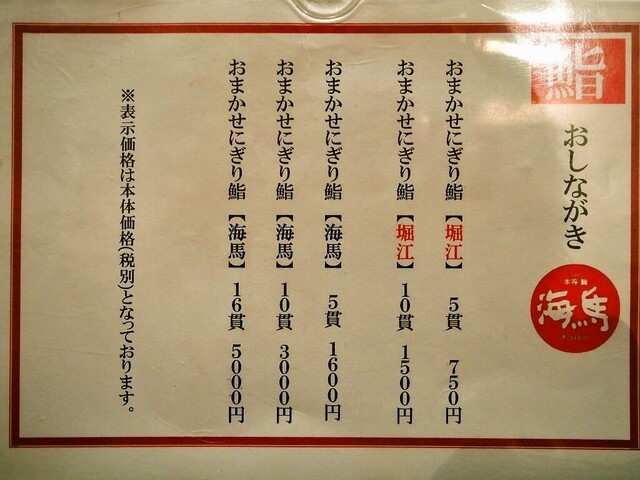 鮨
おしながき
海馬
おまかせにぎり鮨【堀江】5貫 750円
おまかせにぎり鮨【堀江】10貫 1500円
おまかせにぎり鮨【海馬】5貫 1600円
おまかせにぎり鮨【海馬】10貫 3000円
おまかせにぎり鮨【海馬】16貫 5000円
※表示価格は本体価格(税別)となっております。